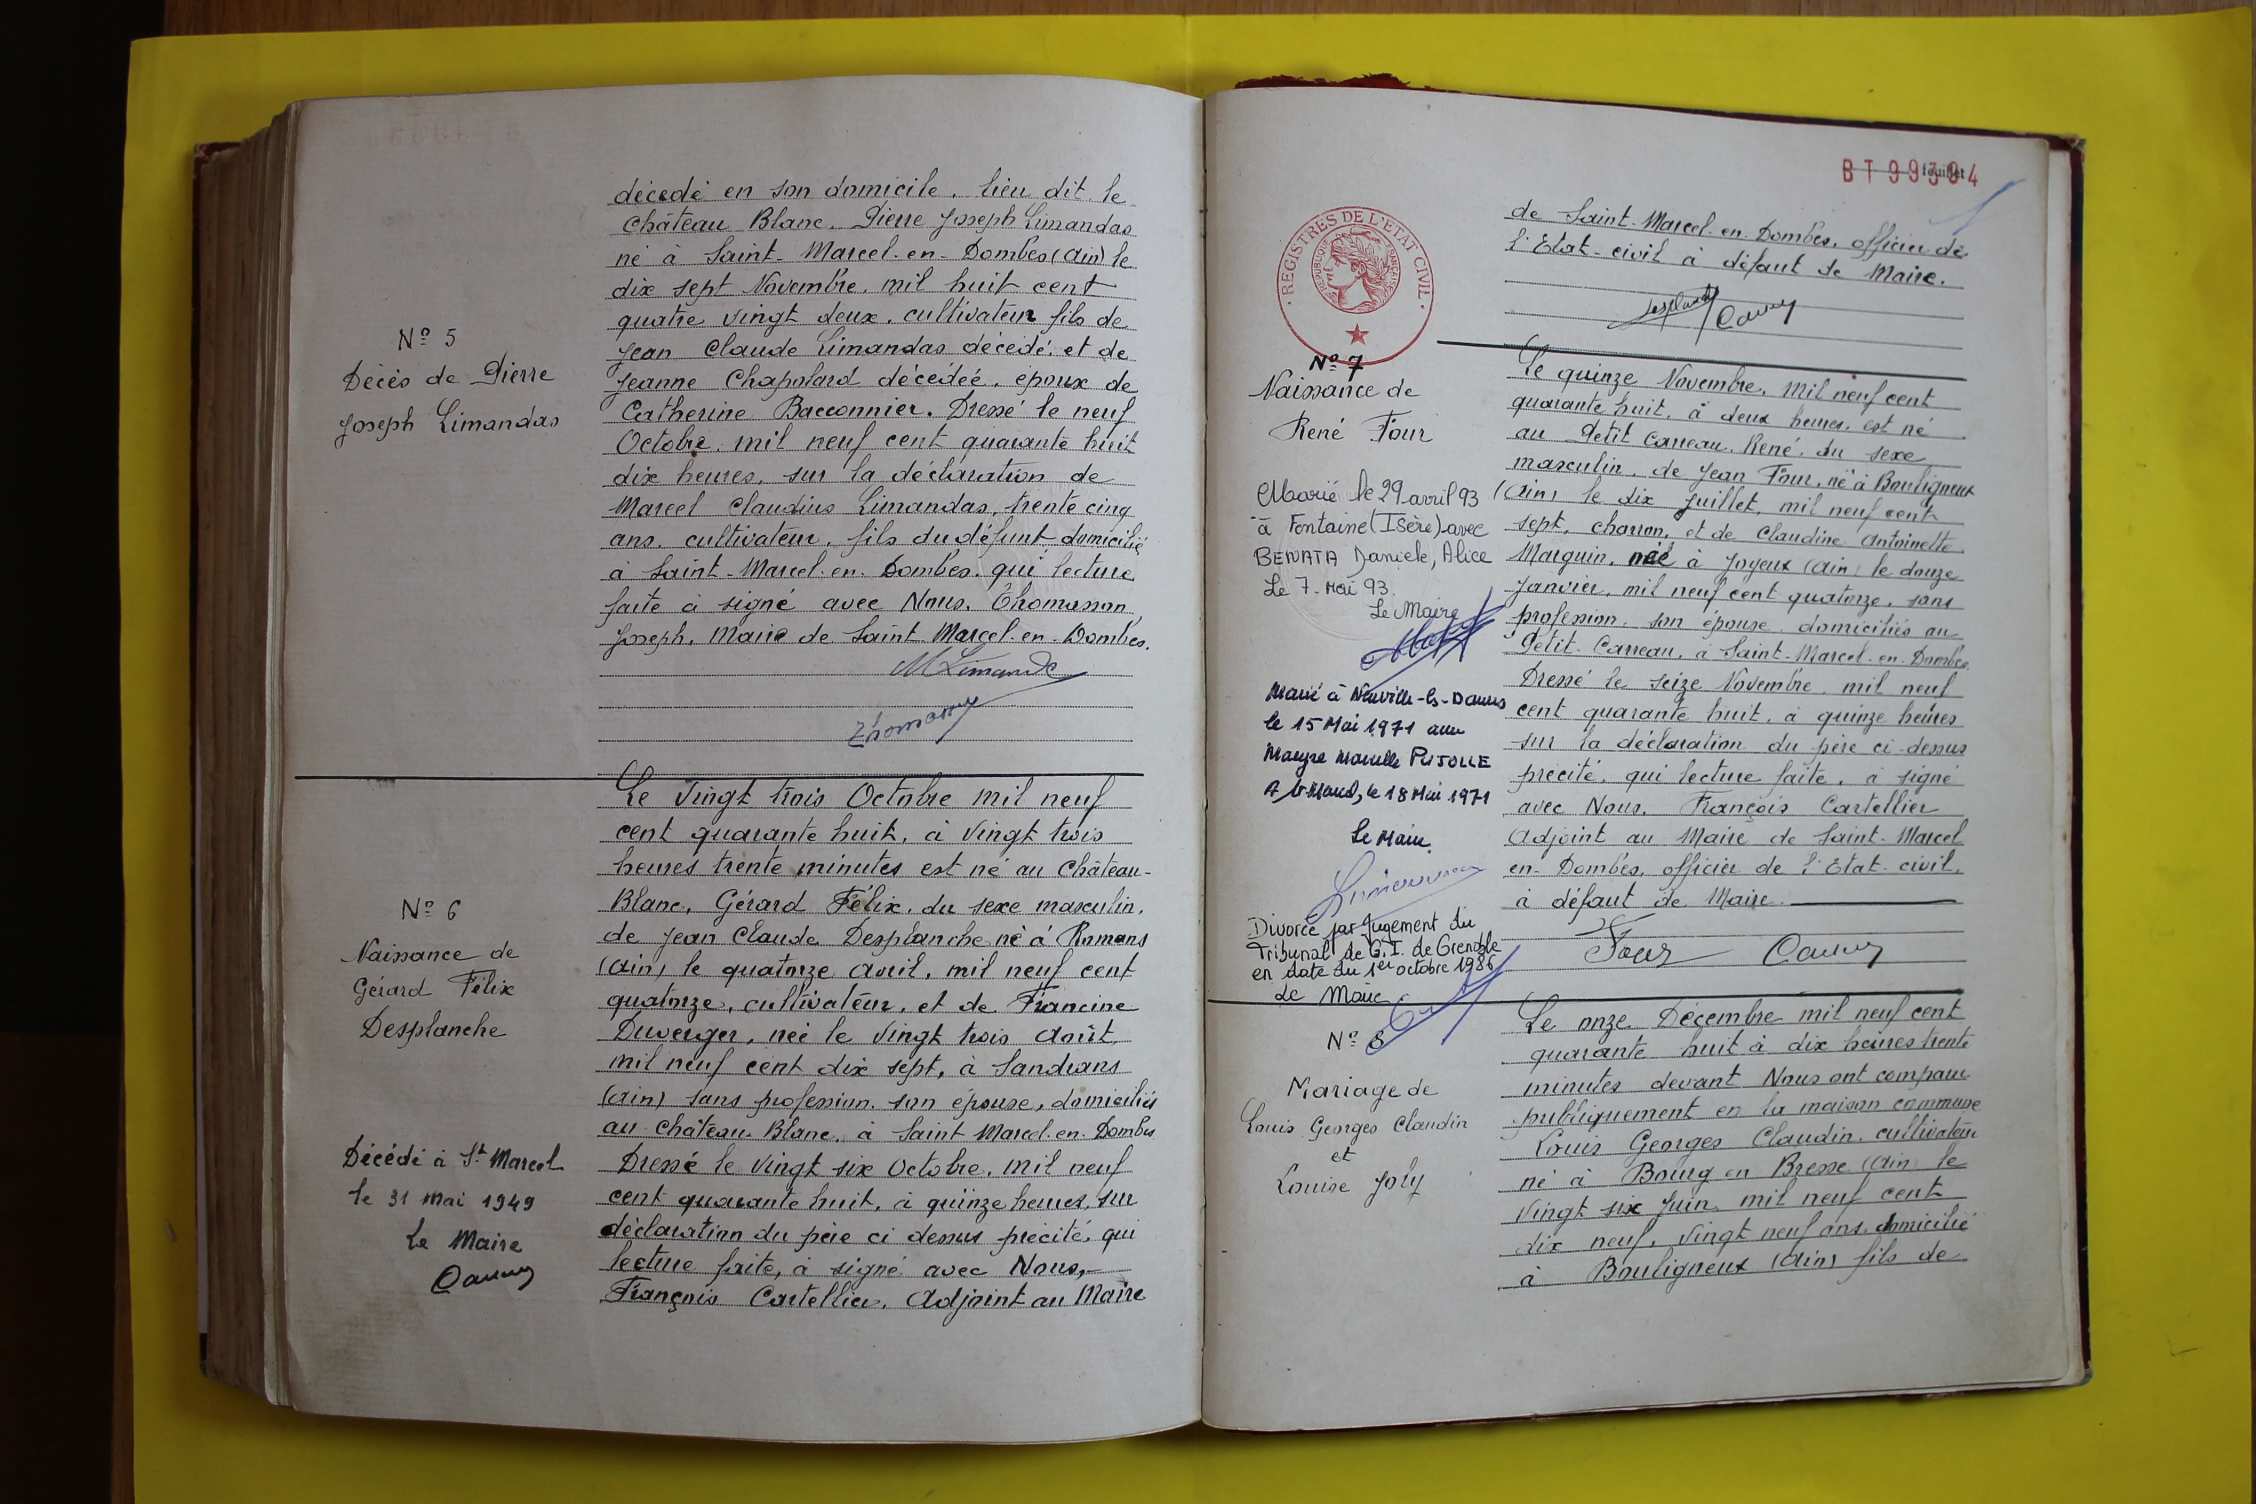 décédé en son domicile, lieu dit le
Château Blanc, Pierre Joseph Limandas
né à Saint-Marcel-en-Dombes (Ain) le
dix sept Novembre, mil huit cent
quatre vingt deux, cultivateur fils de
Jean Claude Limandas décédé, et de
Jeanne Chapolard décédée, époux de
Catherine Bacconnier. Dressé le neuf
Octobre, mil neuf cent quarante huit
dix heures, sur la déclaration de
Marcel Claudius Limandas, trente cinq
ans, cultivateur, fils du défunt domicilié
à Saint-Marcel-en-Dombes, qui lecture
faite à signé avec Nous, Thomasson
Joseph, Maire de Saint Marcel-en-Dombes.
N° 5
Décès de Pierre
Joseph Limandas
Le Vingt trois Octobre mil neuf
cent quarante huit, à Vingt trois
heures trente minutes est né au Château-
Blanc, Gérard Félix, du sexe masculin,
de Jean Claude Desplanche né à Romans
(Ain) le quatorze Avril, mil neuf cent
quatorze, cultivateur, et de Francine
Duverger, née le Vingt trois Août
mil neuf cent dix sept, à Sandrans
(Ain) sans profession, son épouse, domiciliés
au Château Blanc, à Saint Marcel-en-Dombes
Dressé le vingt six Octobre, mil neuf
cent quarante huit, à quinze heures, sur
déclaration du père ci dessus précité, qui
lecture faite, à signé avec Nous,
François Cartellier, Adjoint au Maire
N° 6
Naissance de
Gérard Félix
Desplanche
Décédé à St Marcel
le 31 Mai 1949
Le Maire
BT 99394
feuillet
de Saint-Marcel-en-Dombes, officier de
l'Etat-civil à défaut de Maire.
REGISTRES DE L'ETAT CIVIL
REPUBLIQUE FRANÇAISE
N° 7
Naissance de
René Four
Marié le 29 avril 93
à Fontaine (Isère) avec
BENATA Danièle, Alice
Le 7 Mai 93
Le Maire
Marié à Neuville-les-Dames
le 15 Mai 1971 avec
Maryse Marcelle PUJOLLE
le 18 Mai 1971
Le Maire
Divorcé par Jugement du
Tribunal de G.I. de Grenoble
en date du 1er octobre 1986
Le Maire
Le quinze Novembre, mil neuf cent
quarante huit, à deux heures, est né
au Petit Carreau, René, du sexe
masculin, de Jean Four, né à Bouligneux
(Ain) le dix Juillet, mil neuf cent
sept, charron, et de Claudine Antoinette
Marguin, née à Joyeux (Ain) le douze
Janvier, mil neuf cent quatorze, sans
profession, son épouse, domiciliés au
Petit-Carreau, à Saint-Marcel-en-Dombes.
Dressé le seize Novembre mil neuf
cent quarante huit, à quinze heures
sur la déclaration du père ci-dessus
précité, qui lecture faite, à signé
avec Nous, François Cartellier
Adjoint au Maire de Saint-Marcel
en-Dombes, officier de l'Etat-civil,
à défaut de Maire.
Four
N° 8
Mariage de
Louis Georges Claudin
et
Louise Joly
Le onze Décembre mil neuf cent
quarante huit à dix heures trente
minutes devant Nous ont comparu
publiquement en la maison commune
Louis Georges Claudin, cultivateur
né à Bourg en Bresse (Ain) le
Vingt six Juin mil neuf cent
dix neuf, Vingt neuf ans, domicilié
à Bouligneux (Ain) fils de